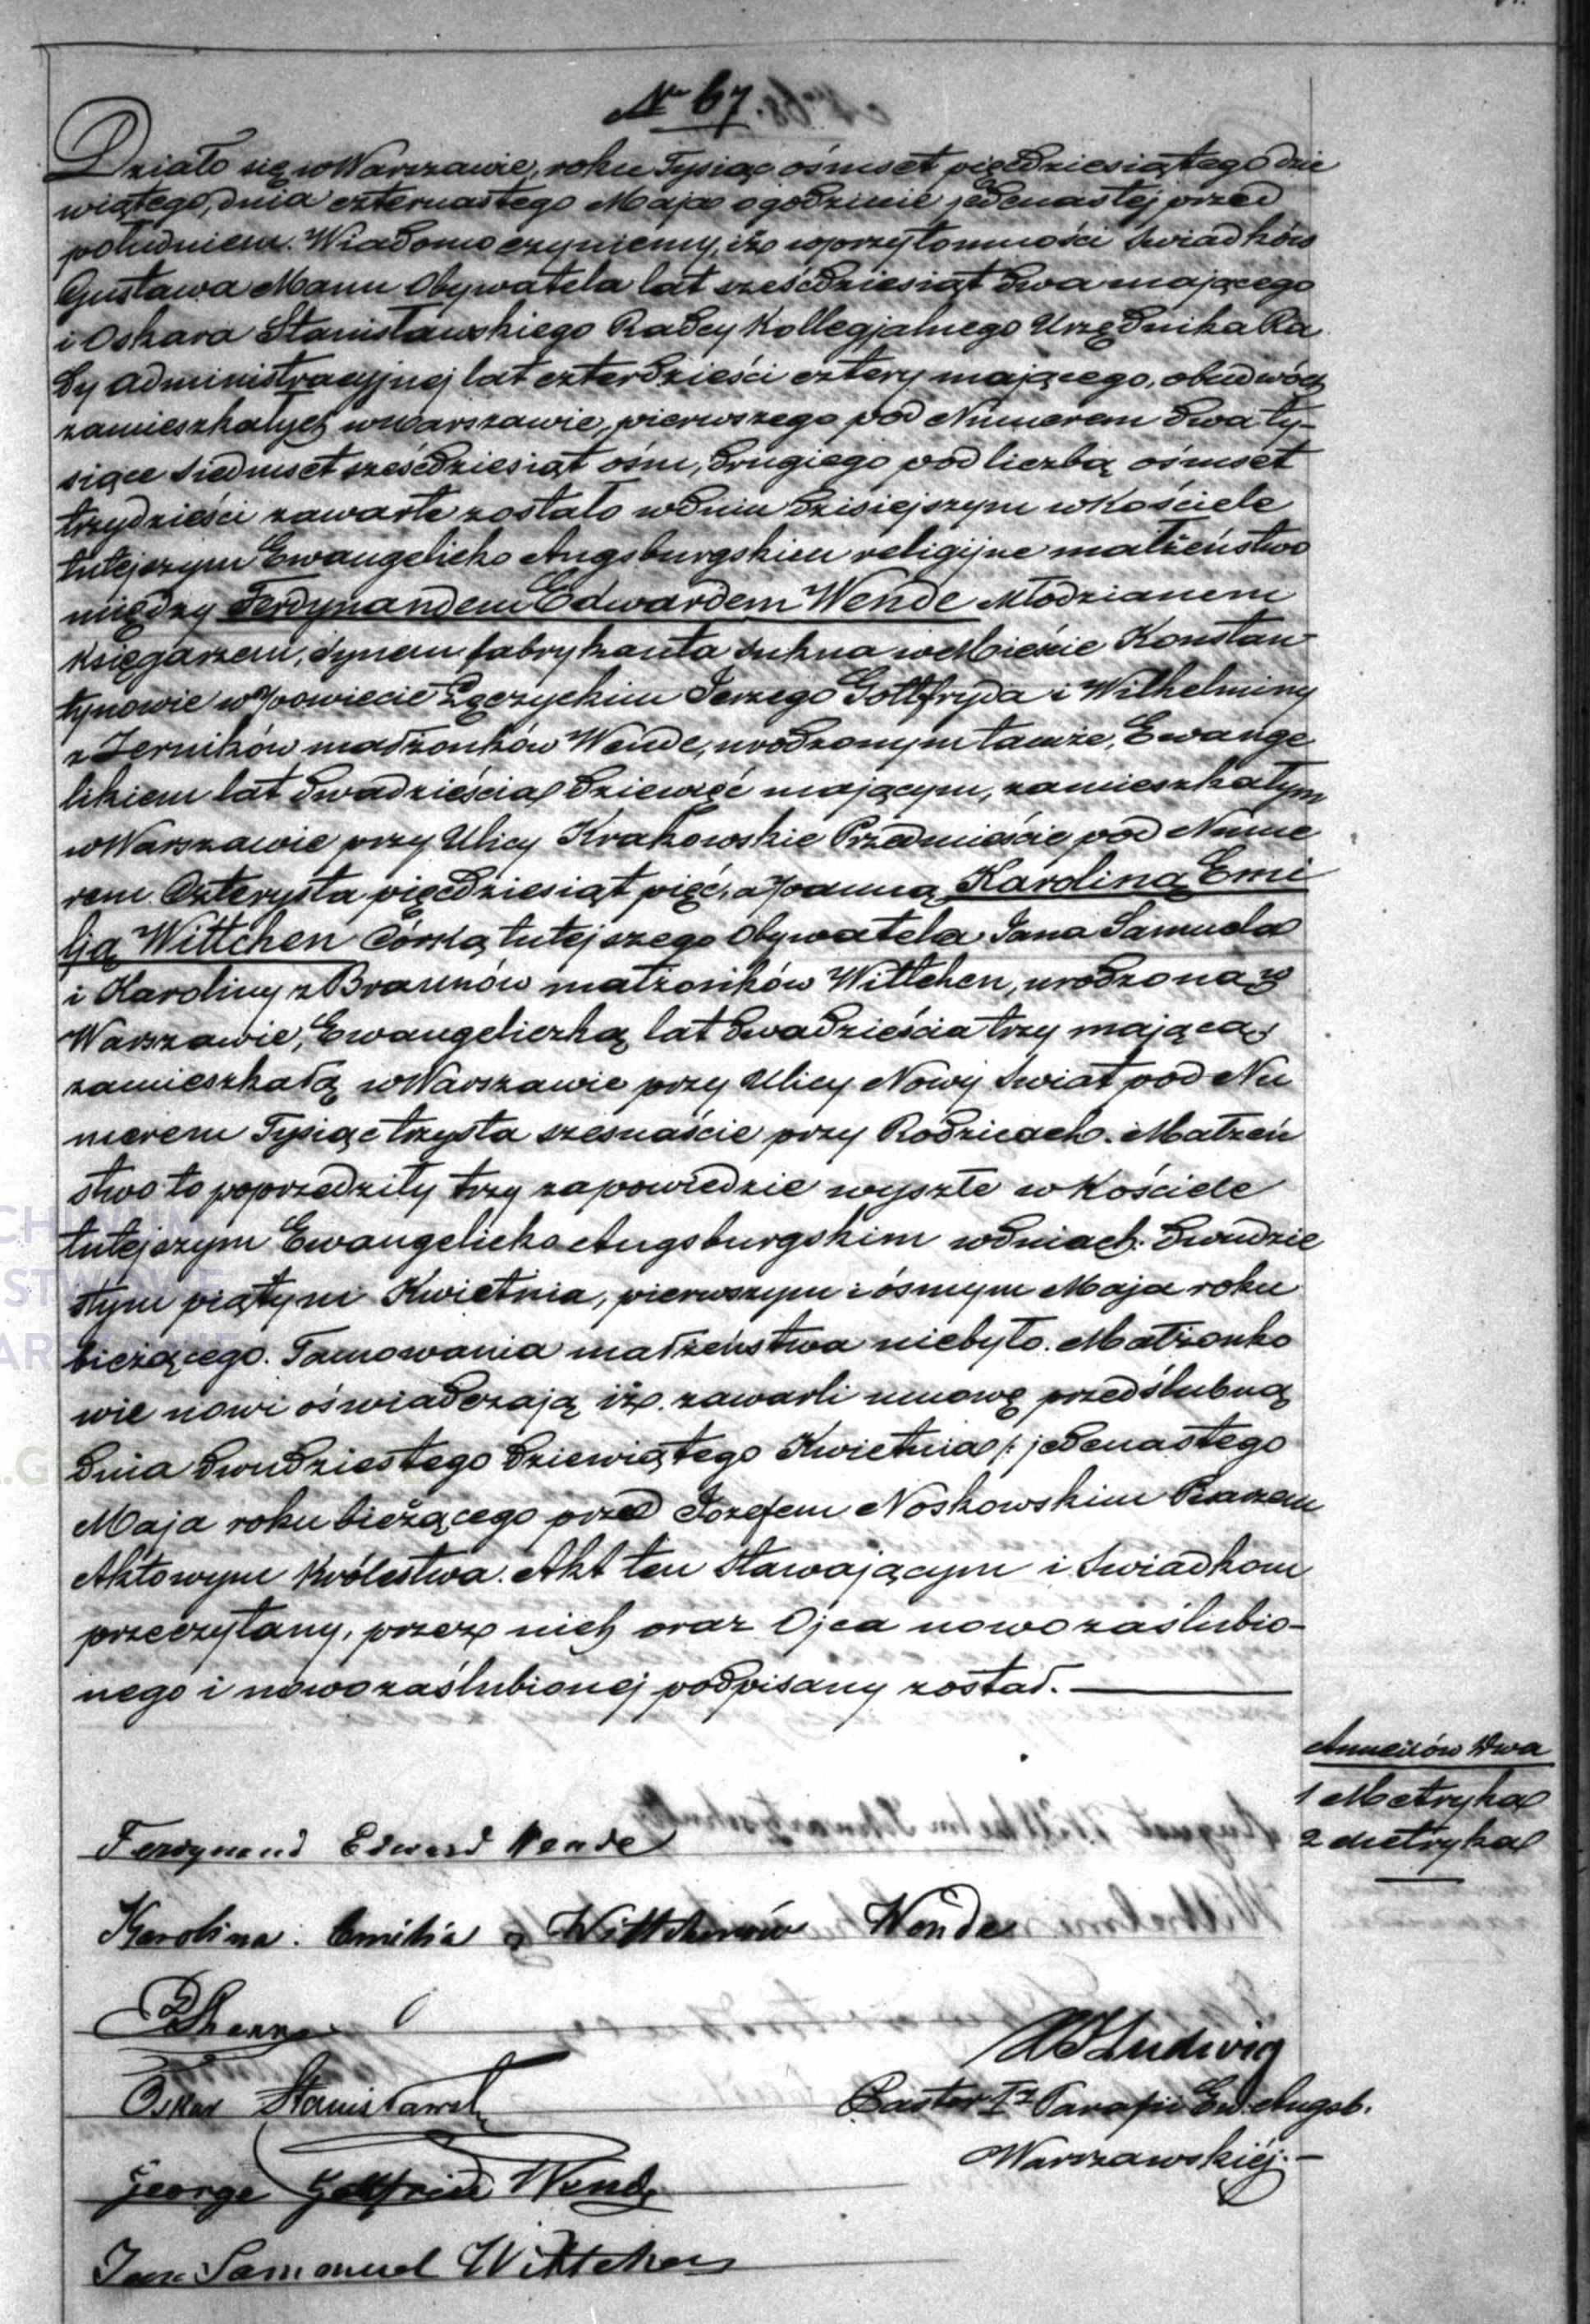 Nr 67.
Działo się w Warszawie, roku Tysiąc ośmset pięćdziesiątego dzie
wiątego, dnia czternastego Maja o godzinie jedenastej przed
południem. Wiadomo czyniemy, iż w przytomności Świadków
Gustawa Mann Obywatela lat sześćdziesiąt dwa mającego
i Oskara Stanisławskiego Radcy Kollegjalnego Urzędnika Ra
dy Administracyjnej lat czterdzieści cztery mającego, obudwóch
zamieszkałych w Warszawie, pierwszego pod Numerem dwa ty-
siące siedmset sześćdziesiąt ośm, drugiego pod liczbą ośmset
trzydzieści zawarte zostało w dniu dzisiejszym w Kościele
tutejszym Ewangelicko Augsburgskim religijne małżeństwo
między Ferdynandem Edwardem Wende Młodzianem
Księgarzem, synem fabrykanta sukna w Mieście Konstan-
tynowie w Powiecie Łęczyckim Jerzego Gottfryda i Wilhelminy
z Jerników małżonków Wende, urodzonym tamże, Ewange
likiem lat dwadzieścia dziewięć mającym, zamieszkałym
w Warszawie przy Ulicy Krakowskie Przedmieście pod Nume
rem Czterysta pięćdziesiąt pięć, a Panną Karoliną Emi
lją Wittchen Córką tutejszego Obywatela Jana Samuela
i Karoliny z Braunów małżonków Wittchen, urodzoną w
Warszawie, Ewangeliczką lat dwadzieścia trzy mającą,
zamieszkałą w Warszawie przy Ulicy Nowy Świat pod Nu
merem Tysiąc trzysta szesnaście przy Rodzicach. Małżeń
stwo to poprzedziły trzy zapowiedzie wyszłe w Kościele
tutejszym Ewangelicko Augsburgskim w dniach: dwudzie
stym piątym Kwietnia, pierwszym i ósmym Maja roku
bieżącego. Tamowania małżeństwa niebyło. Małżonko
wie nowi oświadczają iż zawarli umowę przedślubną
dnia dwudziestego dziewiątego Kwietnia /: jedenastego
Maja roku bieżącego przed Józefem Noskowskim Pisarzem
Aktowym Królestwa. Akt ten Stawającym i Świadkom
przeczytany, przez nich oraz Ojca nowozaślubio-
nego i nowozaślubionej podpisany został.
Annexów Dwa
1 Metryka
2 Metryka
Ferdynand Edward Wende
Karolina Emilia z Wittchenów Wende
Oskar Stanisławski
George Gottfried Wende
Jan Sammuel Wittchen
Ludwig
Pastor Iy Parafii Ew. Augsb.
Warszawskiéj.